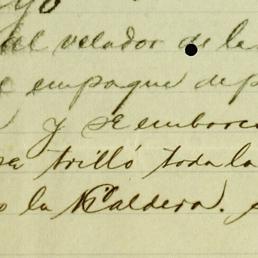 al velador de la
empaque de p
y se embarc
se trilló toda la
la Caldera.